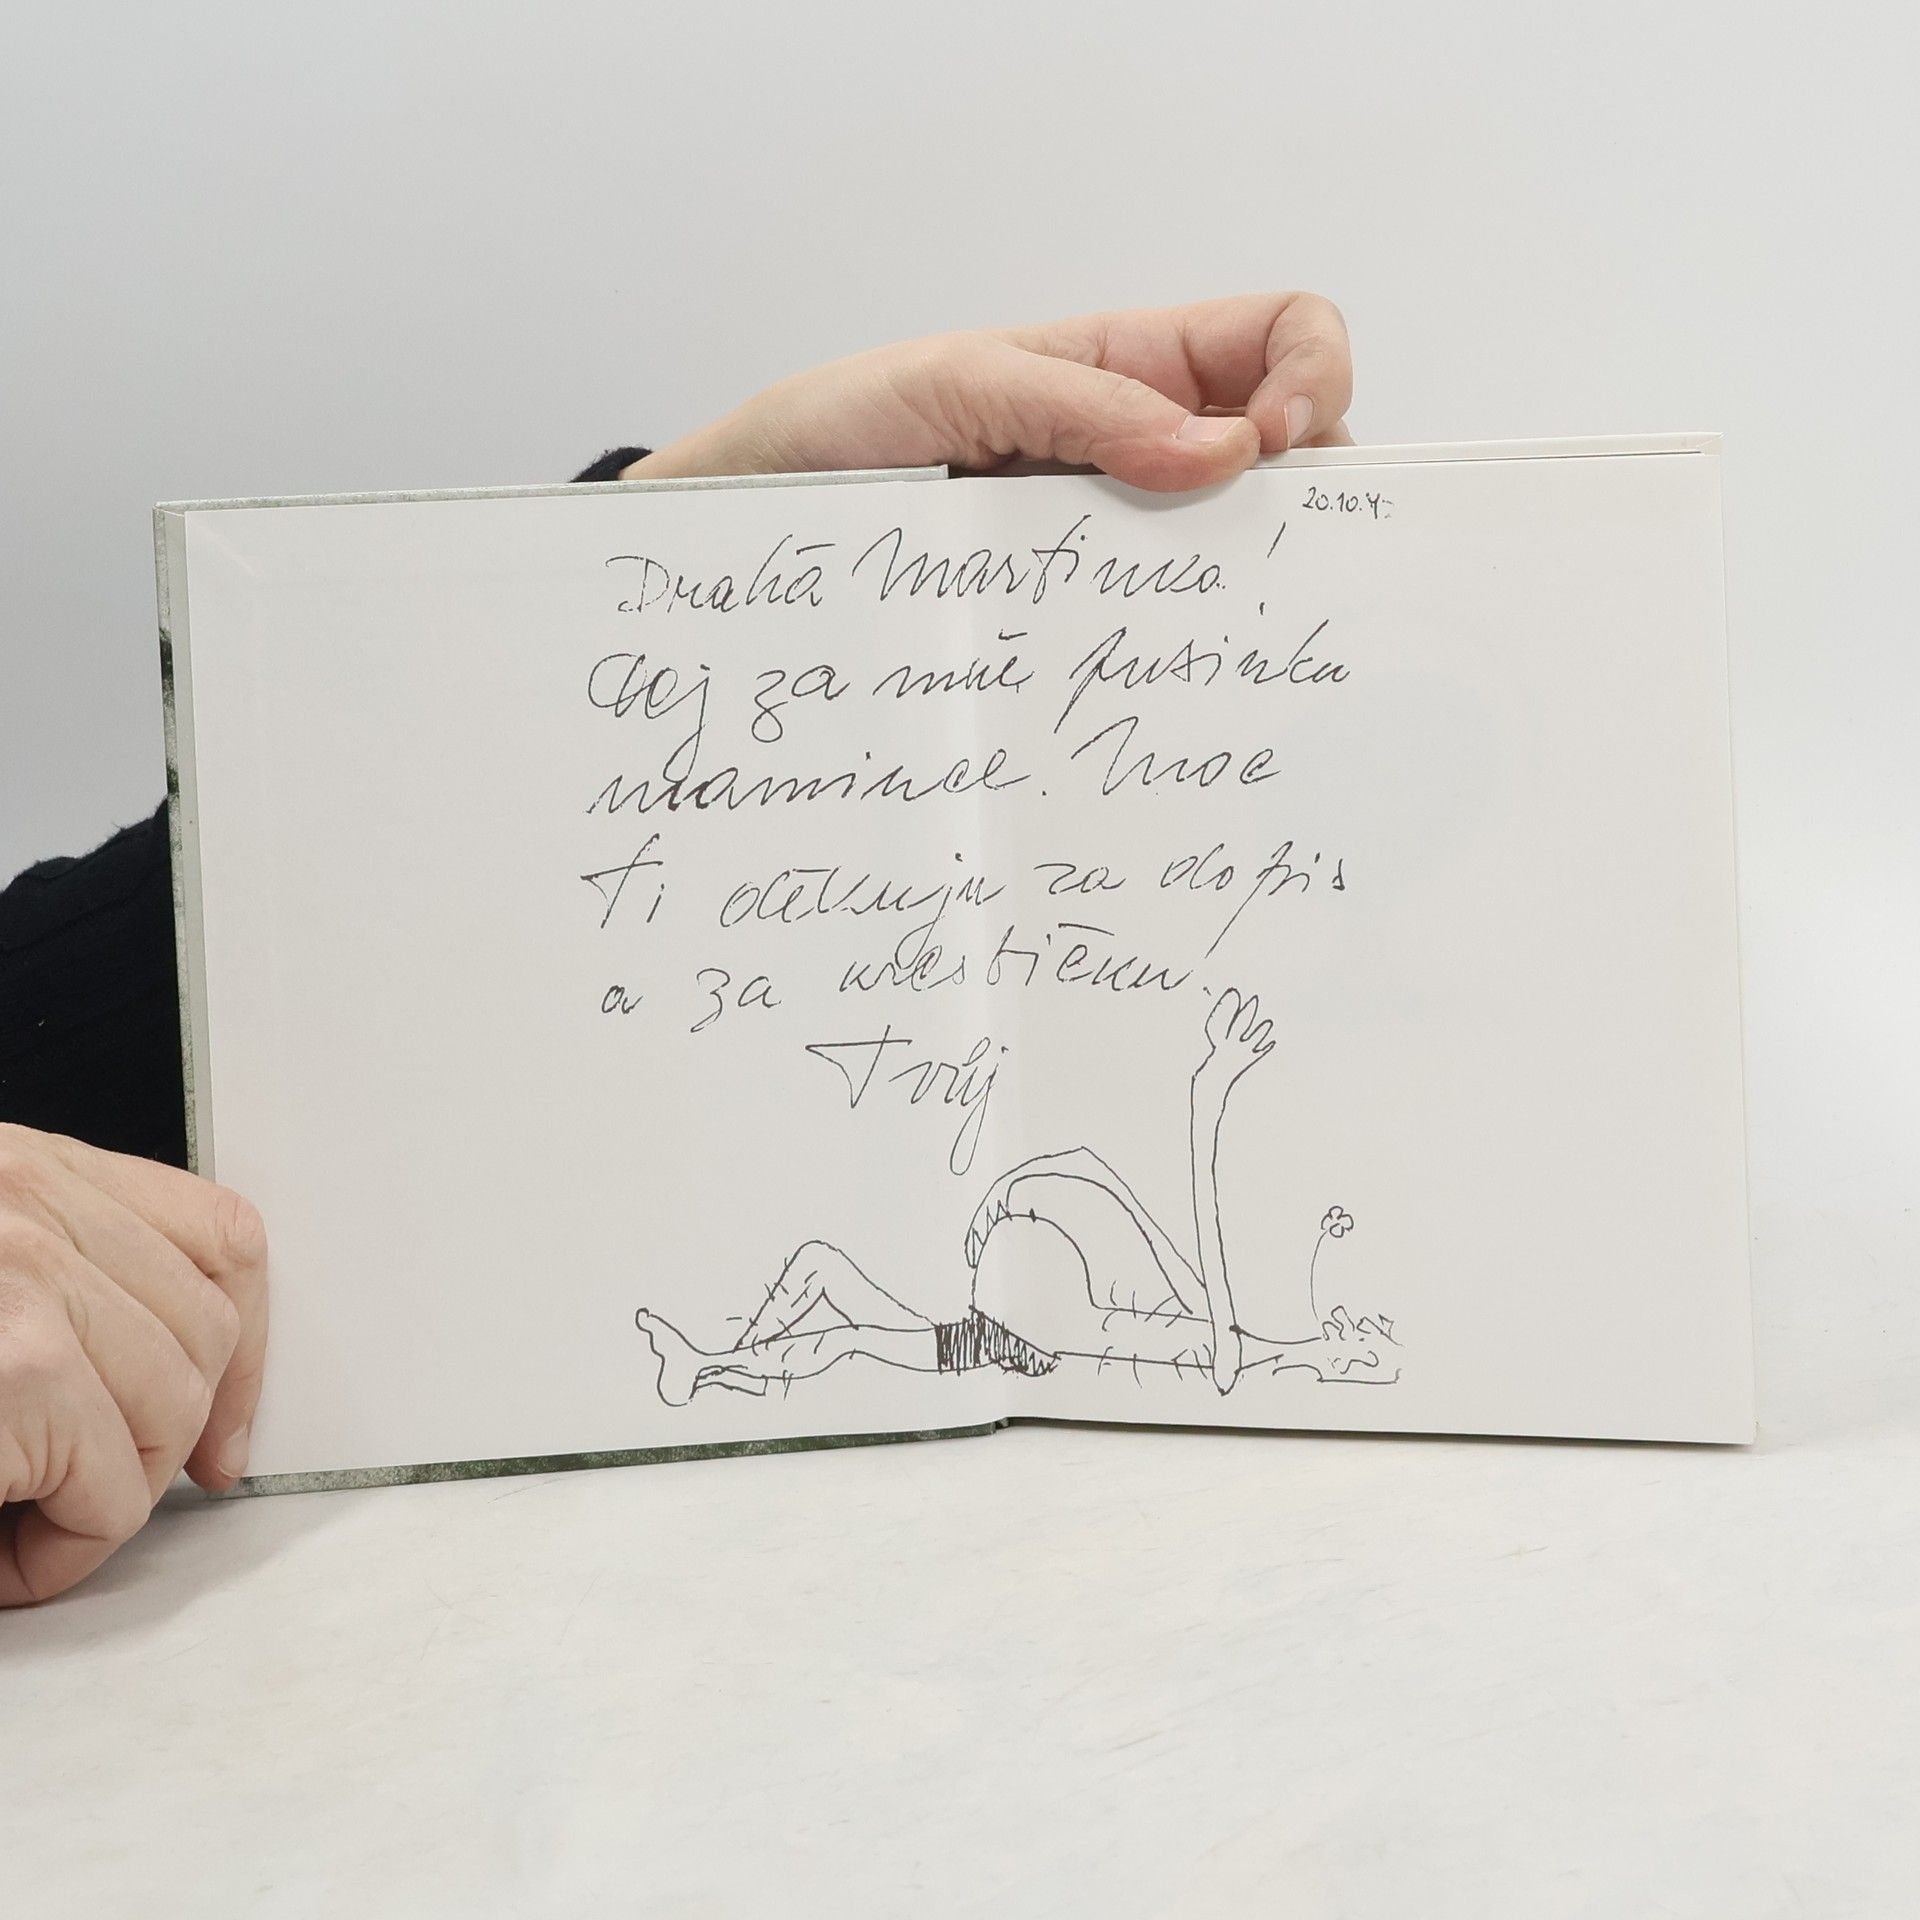 20.10.
Drahá Martinko!
Dej za mne pusinku
mamince. Moc
Ti děkuju za dopis
a za krestičku.
Tvůj